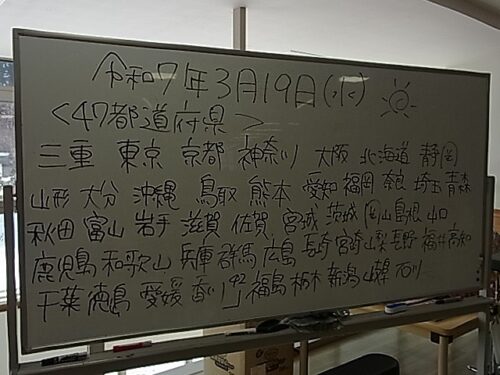 令和7年3月19日(水)
<47都道府県>
三重 東京 京都 神奈川 大阪 北海道 静岡
山形 大分 沖縄 鳥取 熊本 愛知 福岡 奈良 埼玉 青森
秋田 富山 岩手 滋賀 佐賀 宮城 茨城 岡山 島根 山口
鹿児島 和歌山 兵庫 群馬 広島 長崎 宮崎 山梨 長野 福井 高知
千葉 徳島 愛媛 香川 42 福島 栃木 新潟 岐阜 石川